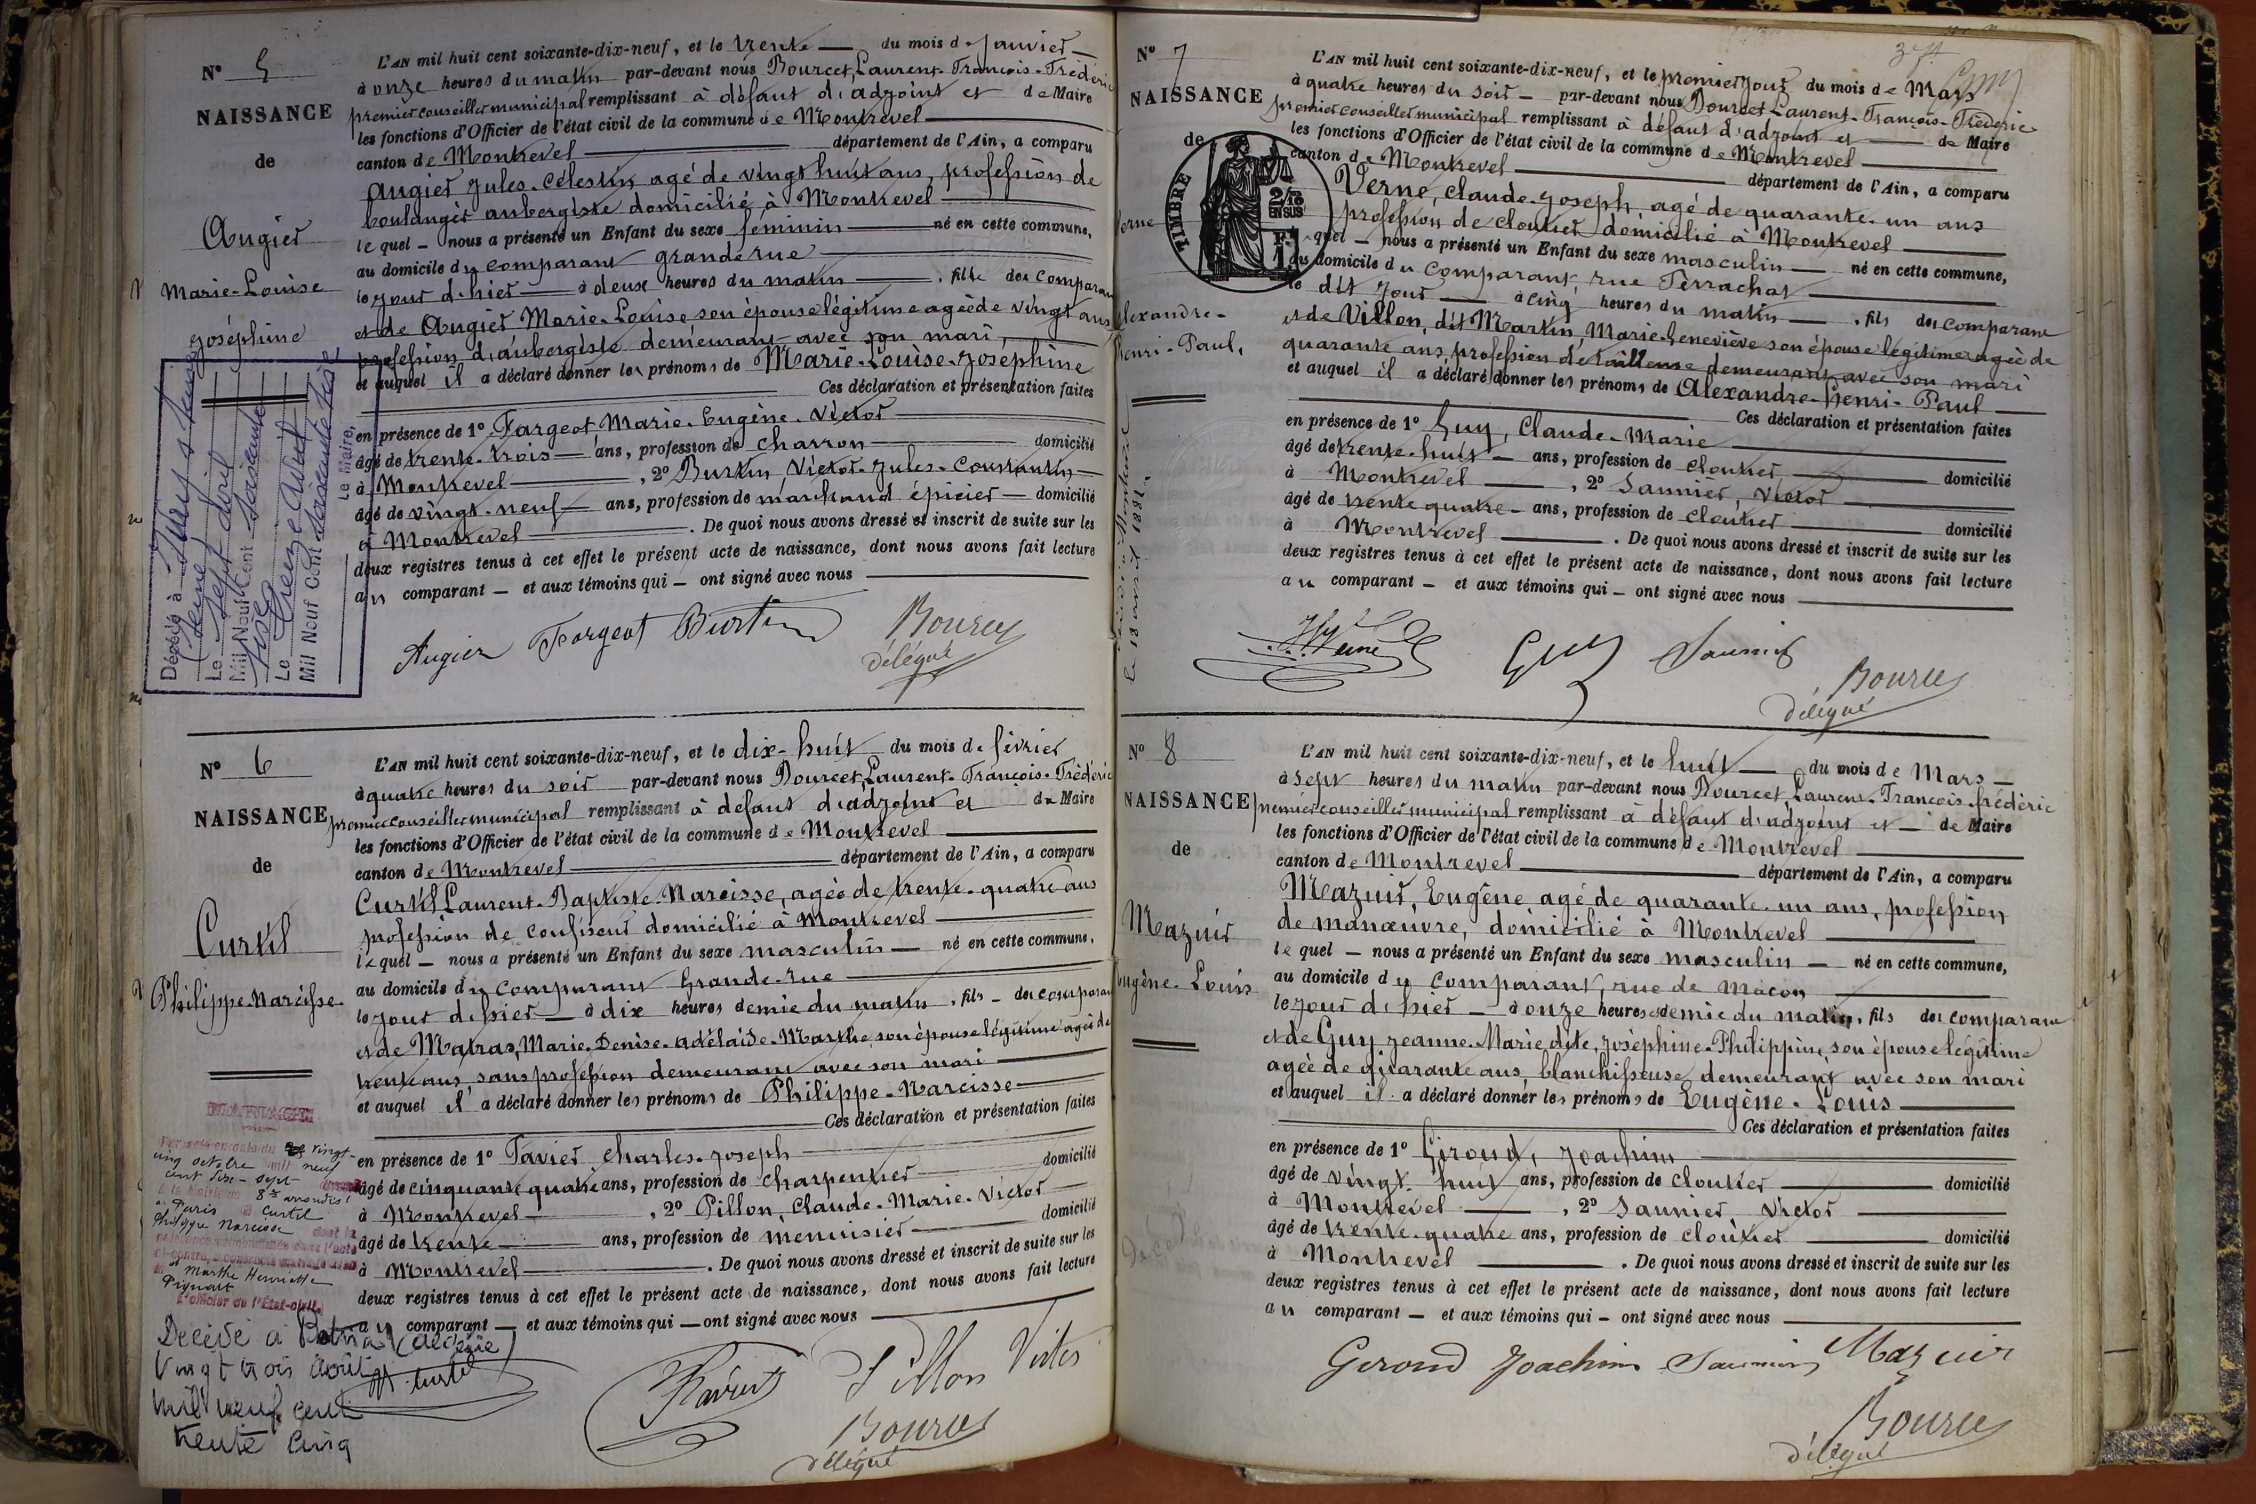 N° 5
NAISSANCE
de
Augier
Marie-Louise
Joséphine
L'AN mil huit cent soixante-dix-neuf, et le trente du mois de Janvier
à onze heures du matin par-devant nous Bourcet, Laurent-François-Frédéric
premier conseiller municipal remplissant à défaut d'adjoint et de Maire
les fonctions d'Officier de l'état civil de la commune de Montrevel
canton de Montrevel département de l'Ain, a comparu
Augier Jules-Célestin agé de vingt huit ans, profession de
boulanger aubergiste domicilié à Montrevel
le quel — nous a présenté un Enfant du sexe féminin né en cette commune,
au domicile du comparant grande rue
le jour d'hier à deux heures du matin , fille des comparant
et de Augier Marie-Louise son épouse légitime agée de vingt ans
profession d'aubergiste demeurant avec son mari,
et auquel il a déclaré donner les prénoms de Marie-Louise-Joséphine
Ces déclaration et présentation faites
en présence de 1° Fargeot Marie-Eugène-Victor
âgé de trente-trois ans, profession de charron domicilié
à Montrevel , 2° Burtin, Victor-Jules-Constantin
âgé de vingt-neuf ans, profession de marchand épicier domicilié
à Montrevel . De quoi nous avons dressé et inscrit de suite sur les
deux registres tenus à cet effet le présent acte de naissance, dont nous avons fait lecture
au comparant — et aux témoins qui — ont signé avec nous
Augier Fargeot Burtin Bourcet
délégué
Le sept avril
Mil Neuf Cent soixante
Le treize Avril
Mil Neuf Cent soixante
Le Maire,
N° 6
NAISSANCE
de
Curtil
Philippe-Narcisse
L'AN mil huit cent soixante-dix-neuf, et le dix-huit du mois de février
à quatre heures du soir par-devant nous Bourcet, Laurent-François-Frédéric
premier conseiller municipal remplissant à défaut d'adjoint et de Maire
les fonctions d'Officier de l'état civil de la commune de Montrevel
canton de Montrevel département de l'Ain, a comparu
Curtil Laurent-Baptiste-Narcisse, agée de trente-quatre ans
profession de confiseur domicilié à Montrevel
lequel — nous a présenté un Enfant du sexe masculin né en cette commune,
au domicile du comparant Grande-rue
le jour d'hier à dix heures demie du matin , fils — des comparant
et de Matras, Marie-Denise-Adélaïde-Marthe, son épouse légitime agée de
trente ans, sans profession demeurant avec son mari
et auquel il a déclaré donner les prénoms de Philippe-Narcisse
Ces déclaration et présentation faites
en présence de 1° Favier Charles-Joseph
âgé de cinquante quatre ans, profession de charpentier domicilié
à Montrevel , 2° Pillon, Claude-Marie-Victor
âgé de trente ans, profession de menuisier domicilié
à Montrevel . De quoi nous avons dressé et inscrit de suite sur les
deux registres tenus à cet effet le présent acte de naissance, dont nous avons fait lecture
au comparant — et aux témoins qui — ont signé avec nous
vingt-
cinq octobre mil neuf
cent dix-sept
8me arrondist
Paris Curtil
Philippe Narcisse
Marthe Henriette
Piquart
L'officier de l'État-civil,
Décédé à
Vingt trois août
mil neuf cent
trente cinq
Favier Pillon Victor
Bourcet
délégué
N° 7
NAISSANCE
de
Verne
Alexandre-
Henri-Paul,
TIMBRE
2/10
EN SUS
L'AN mil huit cent soixante-dix-neuf, et le premier jour du mois de Mars
à quatre heures du soir — par-devant nous Bourcet Laurent-François-Frédéric
premier conseiller municipal remplissant à défaut d'adjoint et de Maire
les fonctions d'Officier de l'état civil de la commune de Montrevel
canton de Montrevel département de l'Ain, a comparu
Verne, Claude-Joseph, agé de quarante-un ans
profession de cloutier domicilié à Montrevel
quel — nous a présenté un Enfant du sexe masculin né en cette commune,
au domicile du comparant, rue Terrachat
le dit jour à cinq heures du matin , fils des comparant
et de Villon, dit Martin, Marie-Geneviève son épouse légitime agée de
quarante ans, profession de tailleuse demeurant avec son mari
et auquel il a déclaré donner les prénoms de Alexandre-Henri-Paul
Ces déclaration et présentation faites
en présence de 1° Guy, Claude-Marie
âgé de trente-huit — ans, profession de cloutier domicilié
à Montrevel , 2° Saunier, Victor
âgé de trente quatre — ans, profession de cloutier domicilié
à Montrevel . De quoi nous avons dressé et inscrit de suite sur les
deux registres tenus à cet effet le présent acte de naissance, dont nous avons fait lecture
au comparant — et aux témoins qui — ont signé avec nous
Verne Guy Saunier
Bourcet
délégué
N° 8
NAISSANCE
de
Mazuir
Eugène-Louis
L'AN mil huit cent soixante-dix-neuf, et le huit du mois de Mars
à sept heures du matin par-devant nous Bourcet Laurent-François-frédéric
premier conseiller municipal remplissant à défaut d'adjoint et — de Maire
les fonctions d'Officier de l'état civil de la commune de Montrevel
canton de Montrevel département de l'Ain, a comparu
Mazuir, Eugène agé de quarante-un ans, profession
de manœuvre, domicilié à Montrevel
le quel — nous a présenté un Enfant du sexe masculin — né en cette commune,
au domicile du comparant, rue de Macon
le jour d'hier — à onze heures demie du matin, fils des comparant
et de Guy Jeanne-Marie dite, Joséphine-Philippine, son épouse légitime
agée de quarante ans, blanchisseuse demeurant avec son mari
et auquel il a déclaré donner les prénoms de Eugène-Louis
Ces déclaration et présentation faites
en présence de 1° Giroud, Joachim
âgé de vingt-huit ans, profession de cloutier domicilié
à Montrevel , 2° Saunier, Victor
âgé de trente-quatre ans, profession de cloutier domicilié
à Montrevel . De quoi nous avons dressé et inscrit de suite sur les
deux registres tenus à cet effet le présent acte de naissance, dont nous avons fait lecture
au comparant — et aux témoins qui — ont signé avec nous
Giroud Joachim Saunier Mazuir
Bourcet
délégué